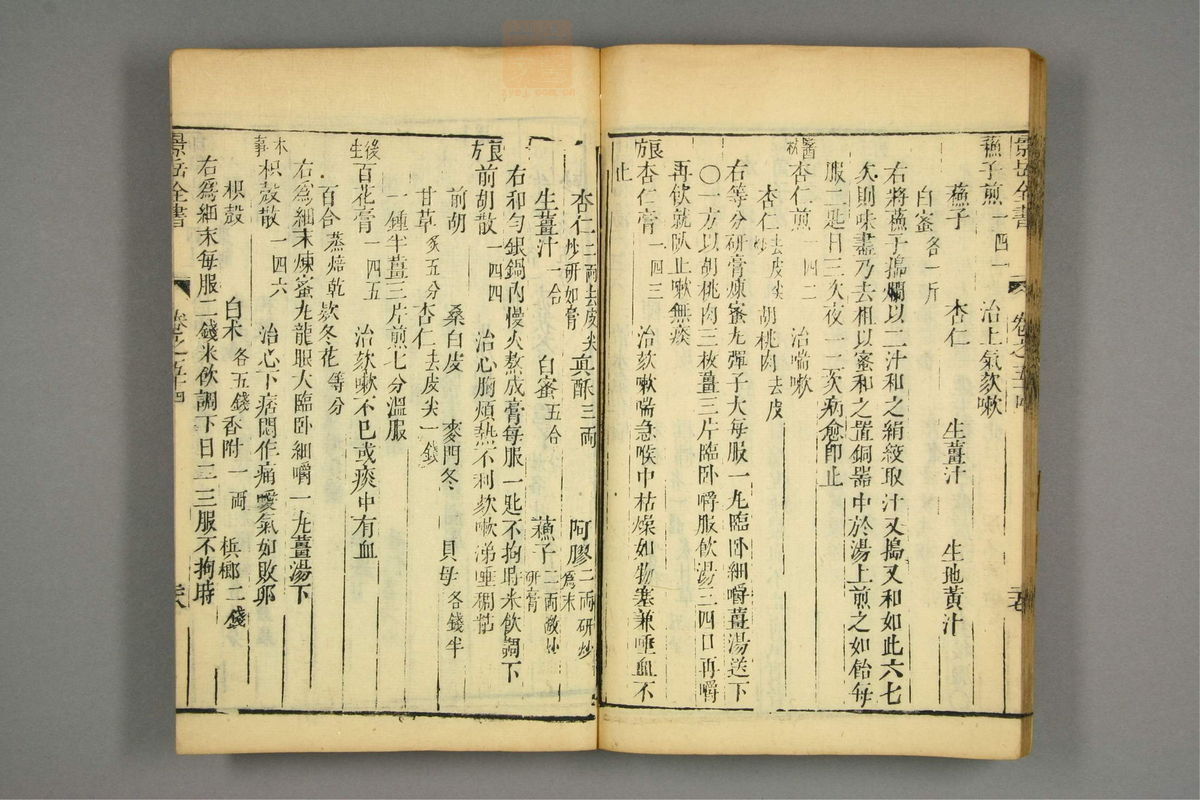 景岳全書 卷之五十四
蘓子煎 一四一 治上氣欬嗽
蘓子 杏仁 生薑汁 生地黃汁
白蜜各一斤
右將蘓子搗爛以二汁和之絹絞取汁又搗又和如此六七
次則味盡乃去柤以蜜和之置銅器中於湯上煎之如飴每
服二匙日三次夜一二次病愈即止
醫林杏仁煎 一四二 治喘嗽
杏仁去皮尖炒 胡桃肉去皮
右等分研膏煉蜜丸彈子大每服一丸臨卧細嚼薑湯送下
○一方以胡桃肉三枚薑三片臨卧嚼服飲湯三四口再嚼
再飲就卧止嗽無痰
良方杏仁膏 一四三 治欬嗽喘急喉中枯燥如物塞兼唾血不
止
杏仁二兩去皮尖炒研如膏 真酥三兩 阿膠二兩研炒為末
生薑汁一合 白蜜五合 蘓子二兩微炒研膏
右和勻銀鍋內慢火熬成膏每服一匙不拘時米飲調下
良方前胡散 一四四 治心胸煩熱不利欬嗽涕唾稠黏
前胡 桑白皮 麥門冬 貝母各錢半
甘草炙五分 杏仁去皮尖一錢
一鍾半薑三片煎七分溫服
後生百花膏 一四五 治欬嗽不已或痰中有血
百合蒸焙乾 欵冬花等分
右為細末煉蜜丸龍眼大臨卧細嚼一丸薑湯下
本事枳殼散 一四六 治心下痞悶作痛噯氣如敗卵
枳殼 白朮各五錢 香附一兩 檳榔二錢
右為細末每服二錢米飲調下日二三服不拘時
景岳全書 卷之五十四